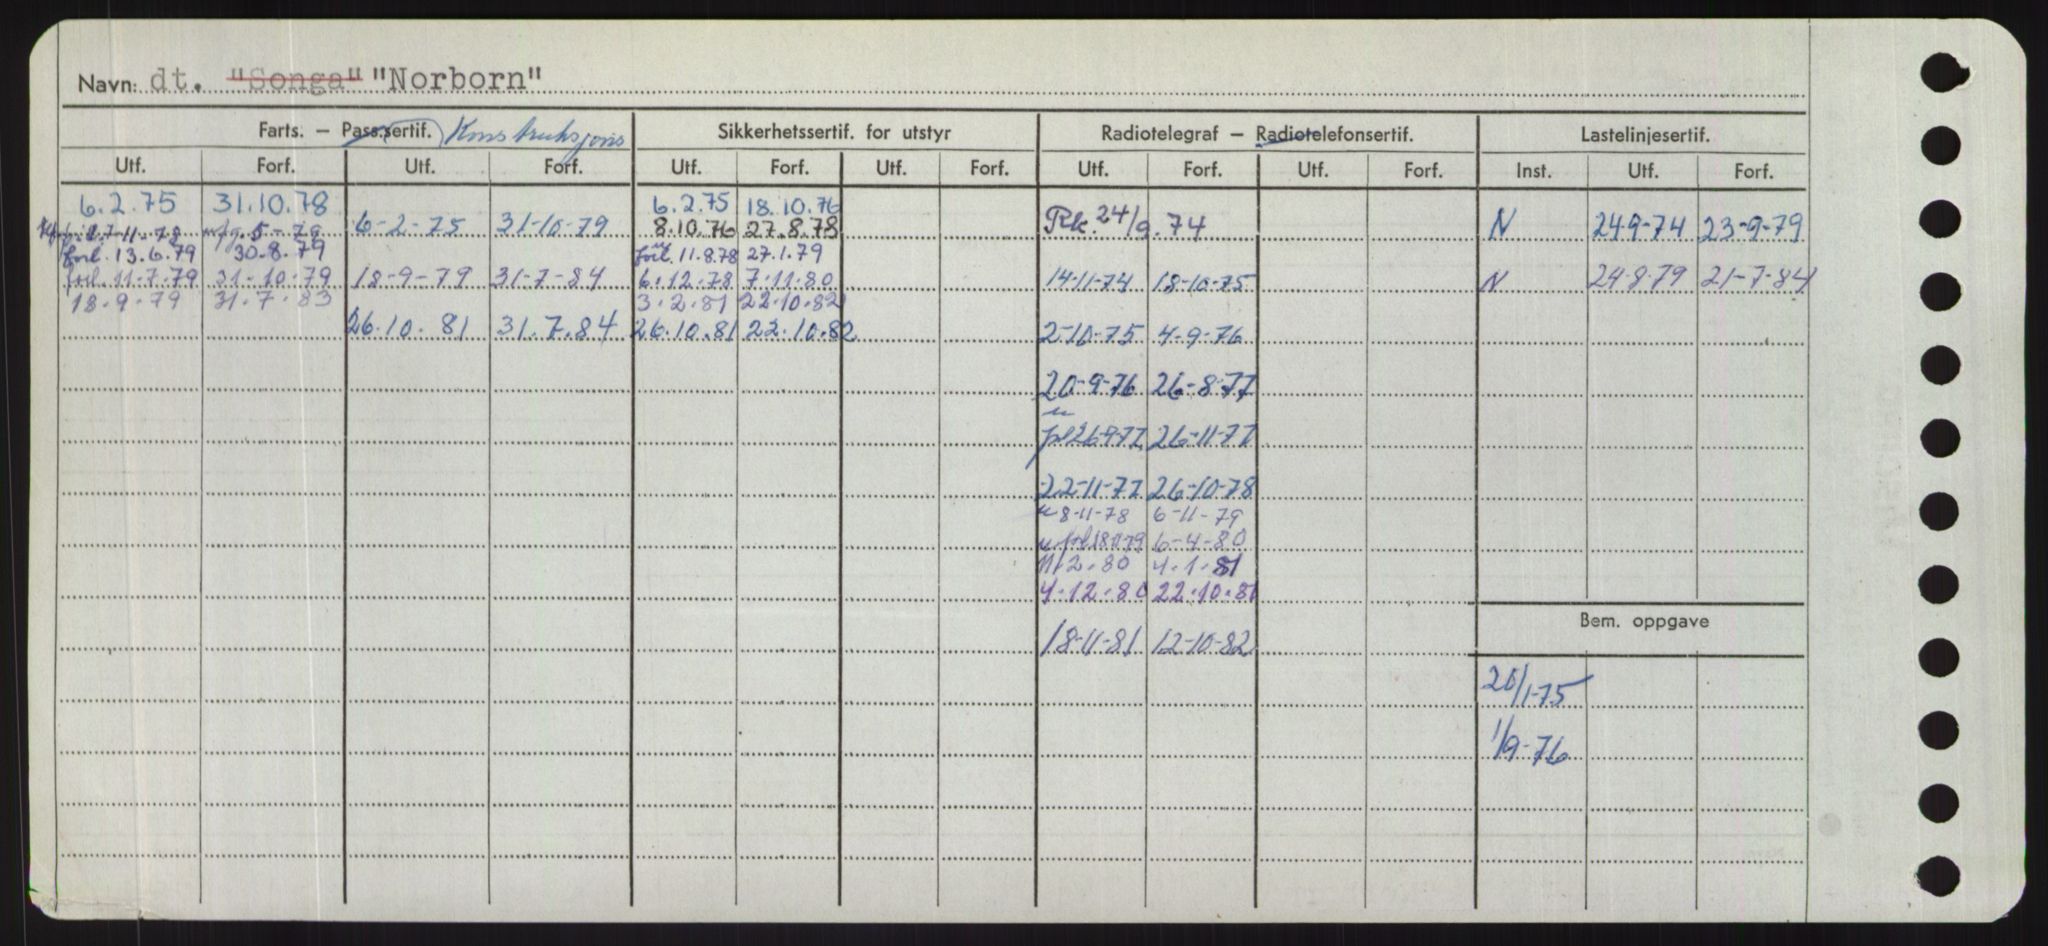 Navn: dt. "Songa" "Norborn"
Farts. — Pass.sertif. Konstruksjons Sikkerhetssertif. for utstyr Radiotelegraf — Radiotelefonsertif. Lastelinjesertif.
Utf. Forf. Utf. Forf. Utf. Forf. Utf. Forf. Utf. Forf. Utf. Forf. Inst. Utf. Forf.
6.2.75 31.10.78 6.2.75 18.10.76
7-11-78 5-79 6-2-75 31-10-79 8.10.76 27.8.78 Rk. 24/9.74 N 24-9-74 23-9-79
forl. 13.6.79 30.8.79 forl. 11.8.78 27.1.79
forl. 11.7.79 31-10.79 18-9-79 31-7-84 6.12.78 7.11.80 14-11-74 18-10-75 N 24-8-79 21-7-84
18.9.79 31.7.83 3.2.81 22.10.82
26.10.81 31.7.84 26.10.81 22.10.82 2-10-75 4-9-76
20-9-76 26-8-77
26-9-77 26-11-77
22-11-77 26-10-78
8-11-78 6-11-79
6-4-80
11.2.80 4.1.81
4.12.80 22.10.81
Bem. oppgave
18-11-81 12-10-82
20/1-75
1/9-76